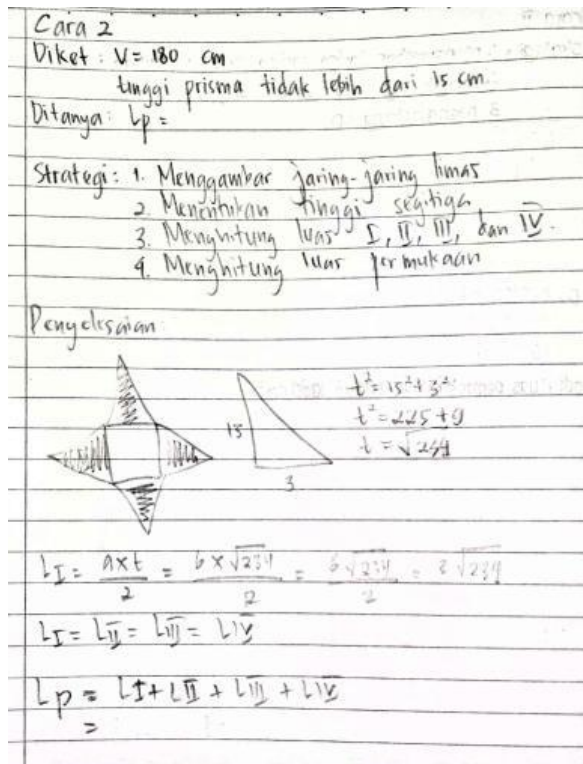 Cara 2
Diket : V = 180 cm
tinggi prisma tidak lebih dari 15 cm.
Ditanya : Lp =
Strategi : 1. Menggambar jaring-jaring limas
2. Menentukan tinggi segitiga
3. Menghitung luas I, II, III, dan IV.
4. Menghitung luas permukaan
Penyelesaian :
15
3
t² = 15² + 3²
t² = 225 + 9
t = √234
LI = axt/2 = 6 x √234/2 = 6√234/2 = 3√234
LI = LII = LIII = LIV
Lp = LI + LII + LIII + LIV
=